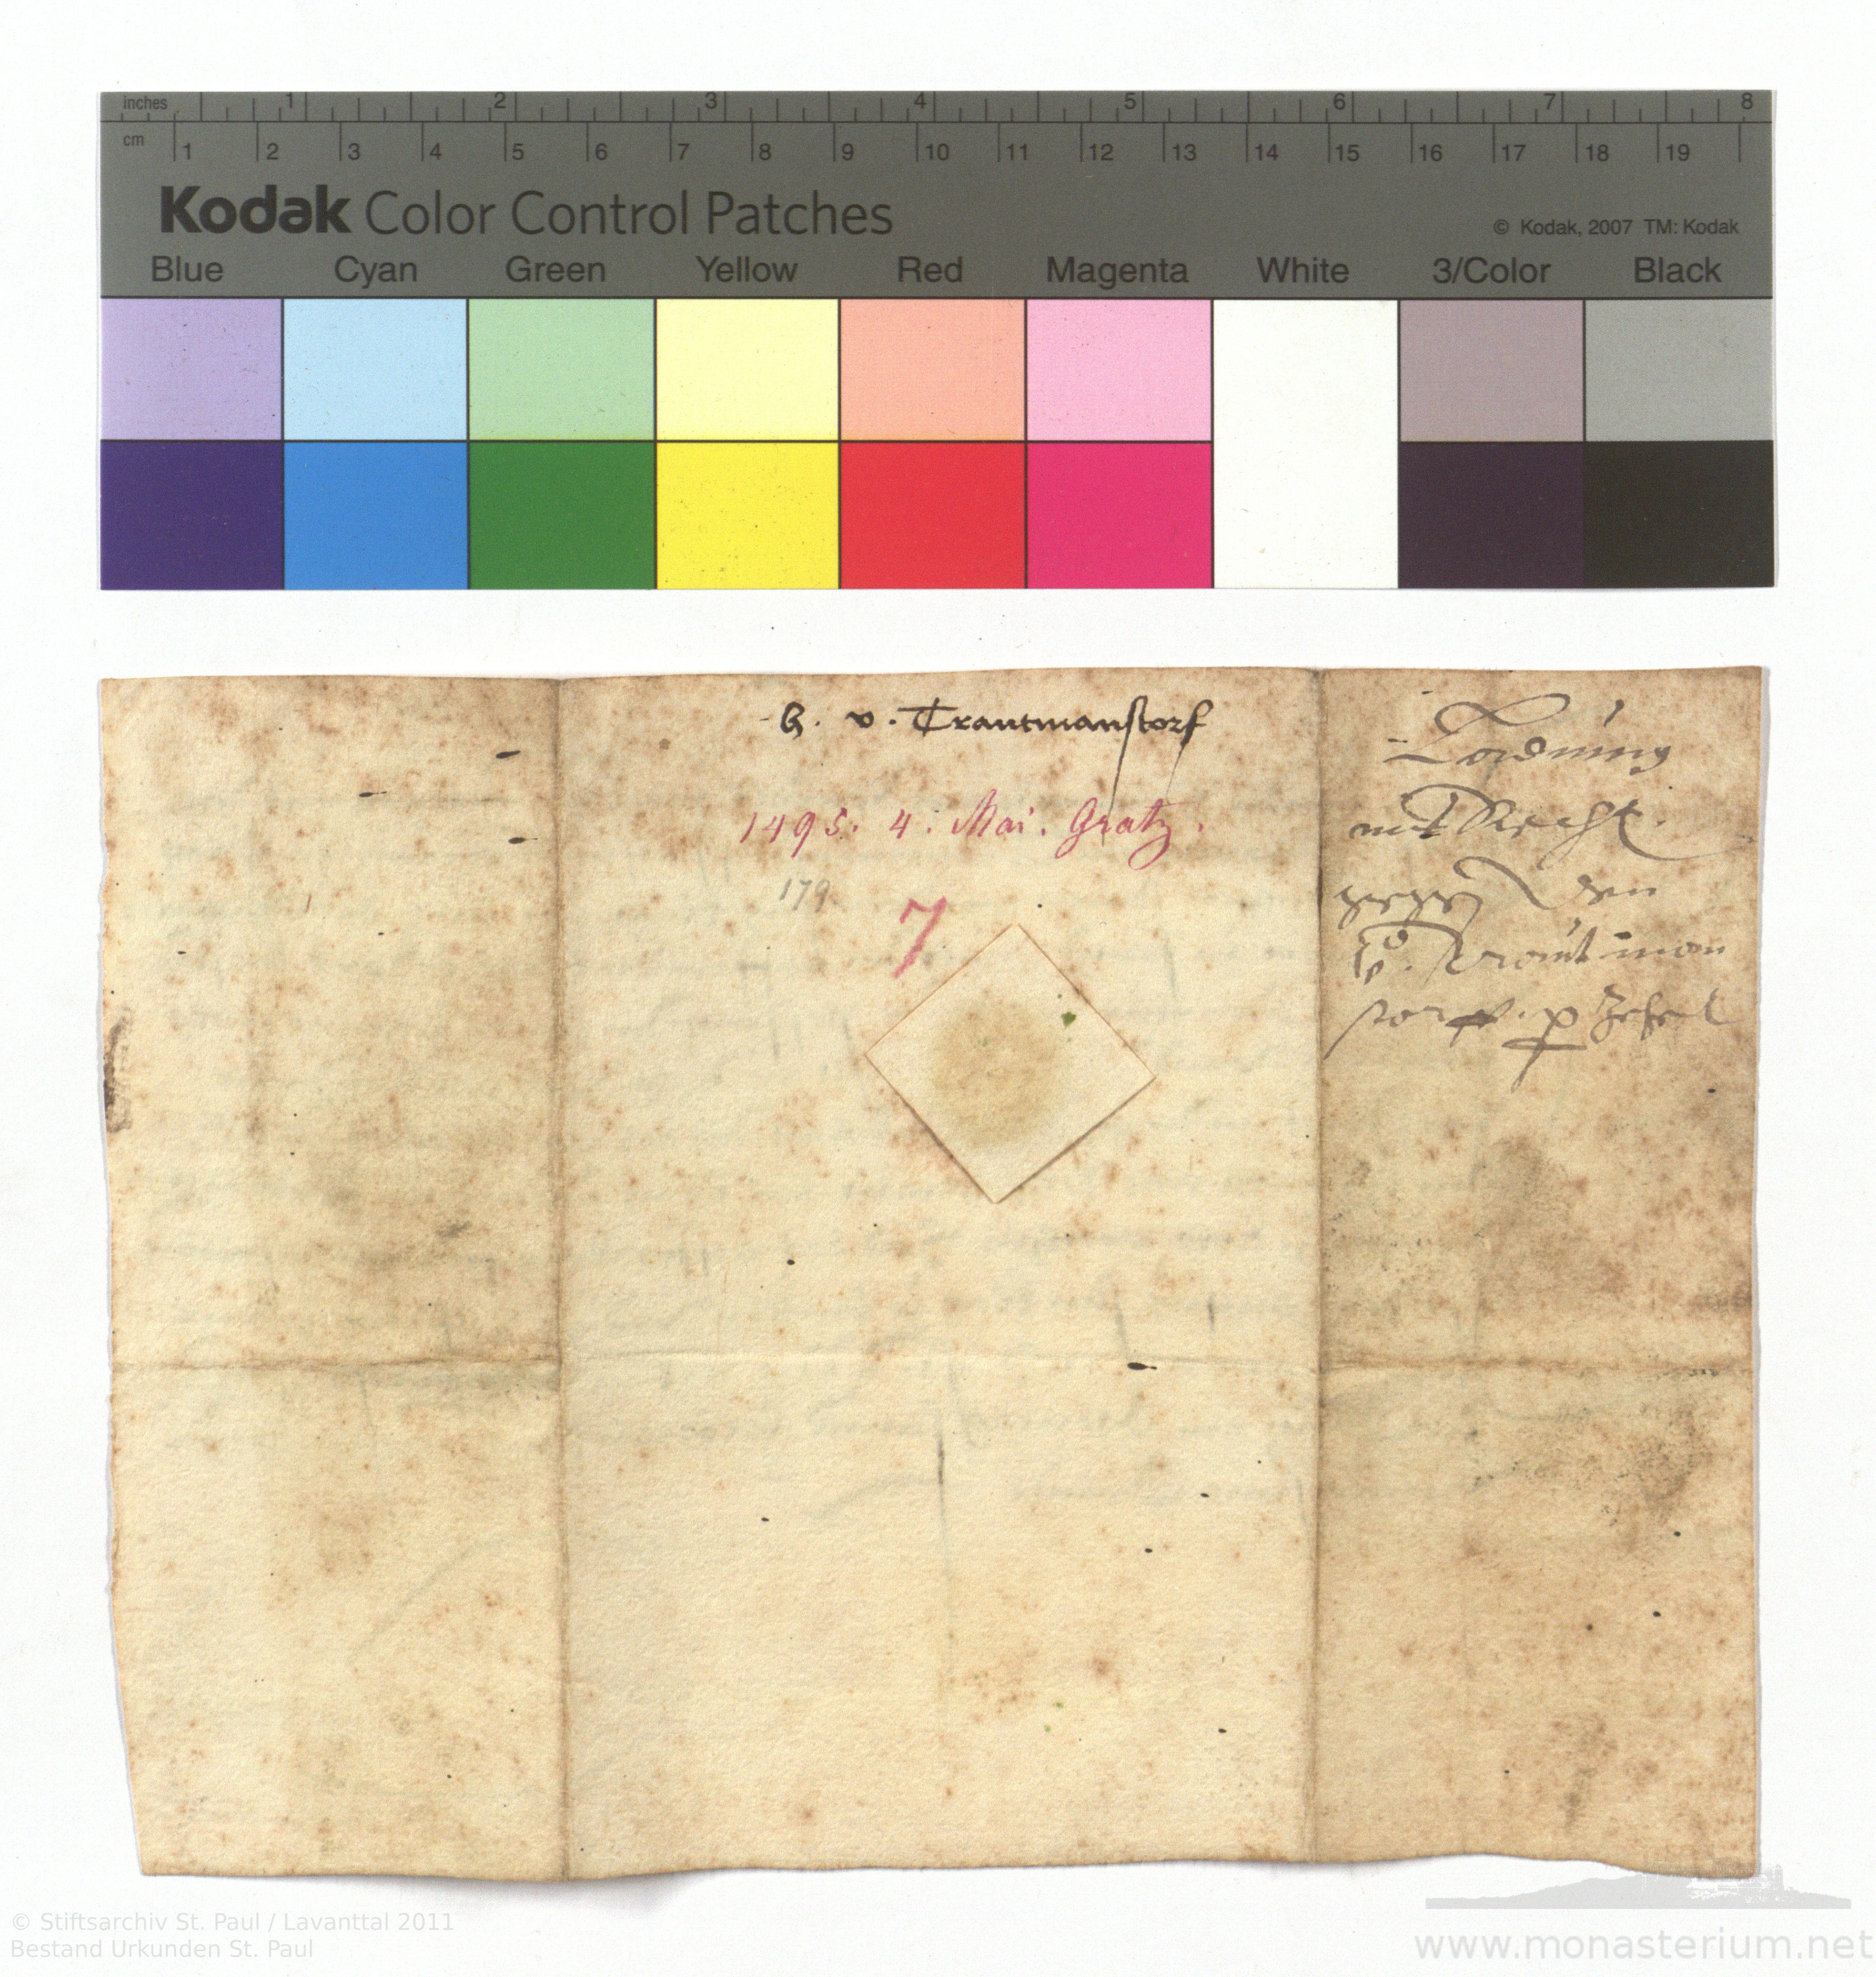 inches 1 2 3 4 5 6 7 8
cm 1 2 3 4 5 6 7 8 9 10 11 12 13 14 15 16 17 18 19
Kodak Color Control Patches
© Kodak, 2007 TM: Kodak
Blue Cyan Green Yellow Red Magenta White 3/Color Black
v. Trautmanstorf
1495. 4. Mai. Gratz.
179.
7
Ladung
mit Recht.
gegen den
v. Trautman
© Stiftsarchiv St. Paul / Lavanttal 2011
Bestand Urkunden St. Paul
www.monasterium.net